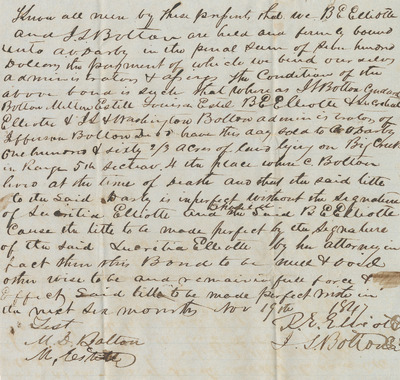 Know all men by these presents that we B E Elliotte
and J S Bolton are held and firmly bound
unto A Darby in the penal Sum of hundred
Dollars the payment of which we bind our selves
administrators & assigns The Condition of the
above bond is Such that where as J S Bolton
Bolton Estill Louisa Estill B E Elliotte & Lucretia
Elliotte & J S & Washington Bolton administrators of
Jefferson Bolton have this day sold to A Darby
One hundred & Sixty acres of land lying on Big Creek
in Range 5th Section 4 the place where C. Bolton
lived at the time of Death and that the said title
to the Said Darby is imperfect without the Signature
of Lucritia Elliotte and the Said B E Elliotte
Cause the title to be made perfect by the Signature
of the said Lucritia Elliotte by her attorney in
fact then this Bond to be null & void
other wise to be and remain in full force &
Effect Said title to be made perfect with in
the next six months Nov 19th
Test B. E. Elliott
M. D. Bolton J. S Bolton
M. Estill